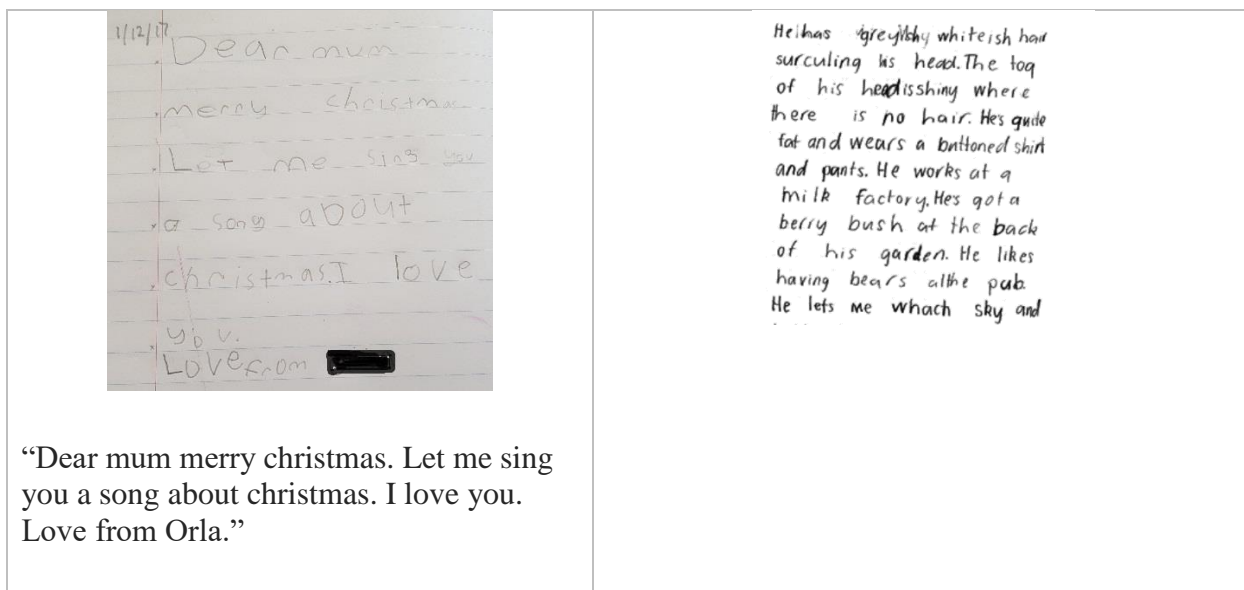 1/12/17
Dear mum
merry christmas
Let me sing you
a song about
christmas.I love
you.
Love from
“Dear mum merry christmas. Let me sing
you a song about christmas. I love you.
Love from Orla.”
He has greyishy whiteish hair
surculing his head. The top
of his head is shiny where
there is no hair. He's quite
fat and wears a buttoned shirt
and pants. He works at a
milk factory. He's got a
berry bush at the back
of his garden. He likes
having bears at the pub.
He lets me whach sky and